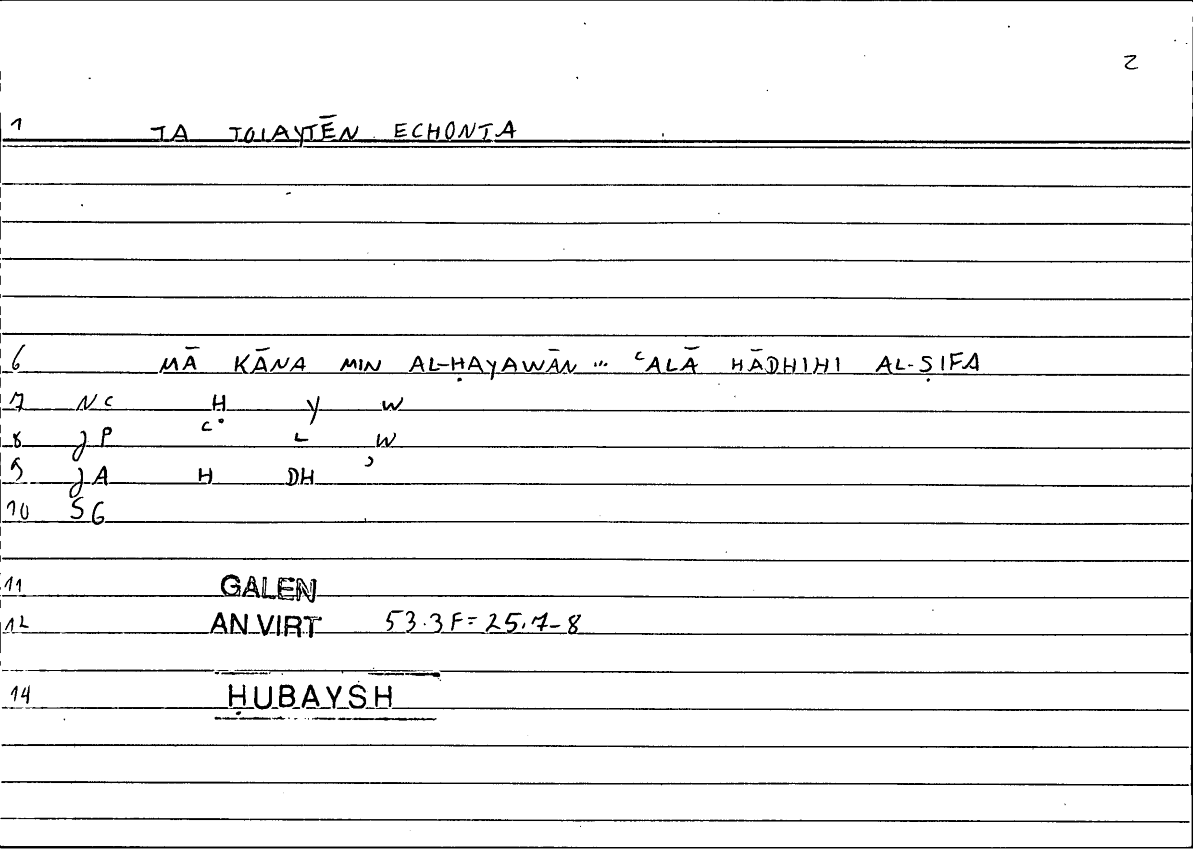 2
1 TA TOIAYTĒN ECHONTA
6 MĀ KĀNA MIN AL-ḤAYAWĀN ... ʿALĀ HĀDHIHI AL-ṢIFA
7 NC Ḥ Y W
8 JP ʿ L W
9 JA H DH ʾ
10 SG
11 GALEN
12 AN VIRT 53.3F=25.7-8
14 ḤUBAYSH